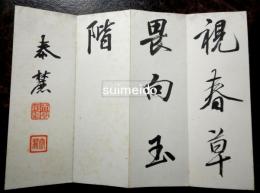 視春草
畏向玉
階
泰麓
suimeido